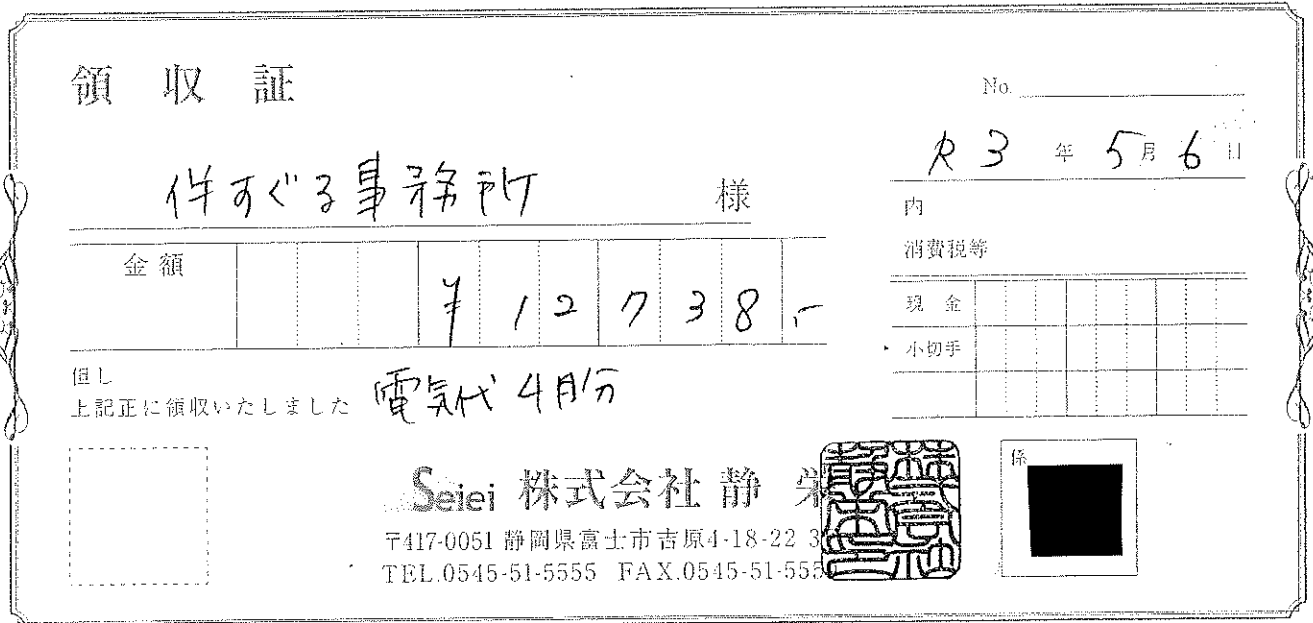 領収証
No.
R3年5月6日
伴すぐる事務所 様
内
消費税等
金額 ¥12738,-
現金
小切手
但し 電気代4月分
上記正に領収いたしました
係
Seiei 株式会社 静栄
〒417-0051 静岡県富士市吉原4-18-22
TEL.0545-51-5555 FAX.0545-51-555